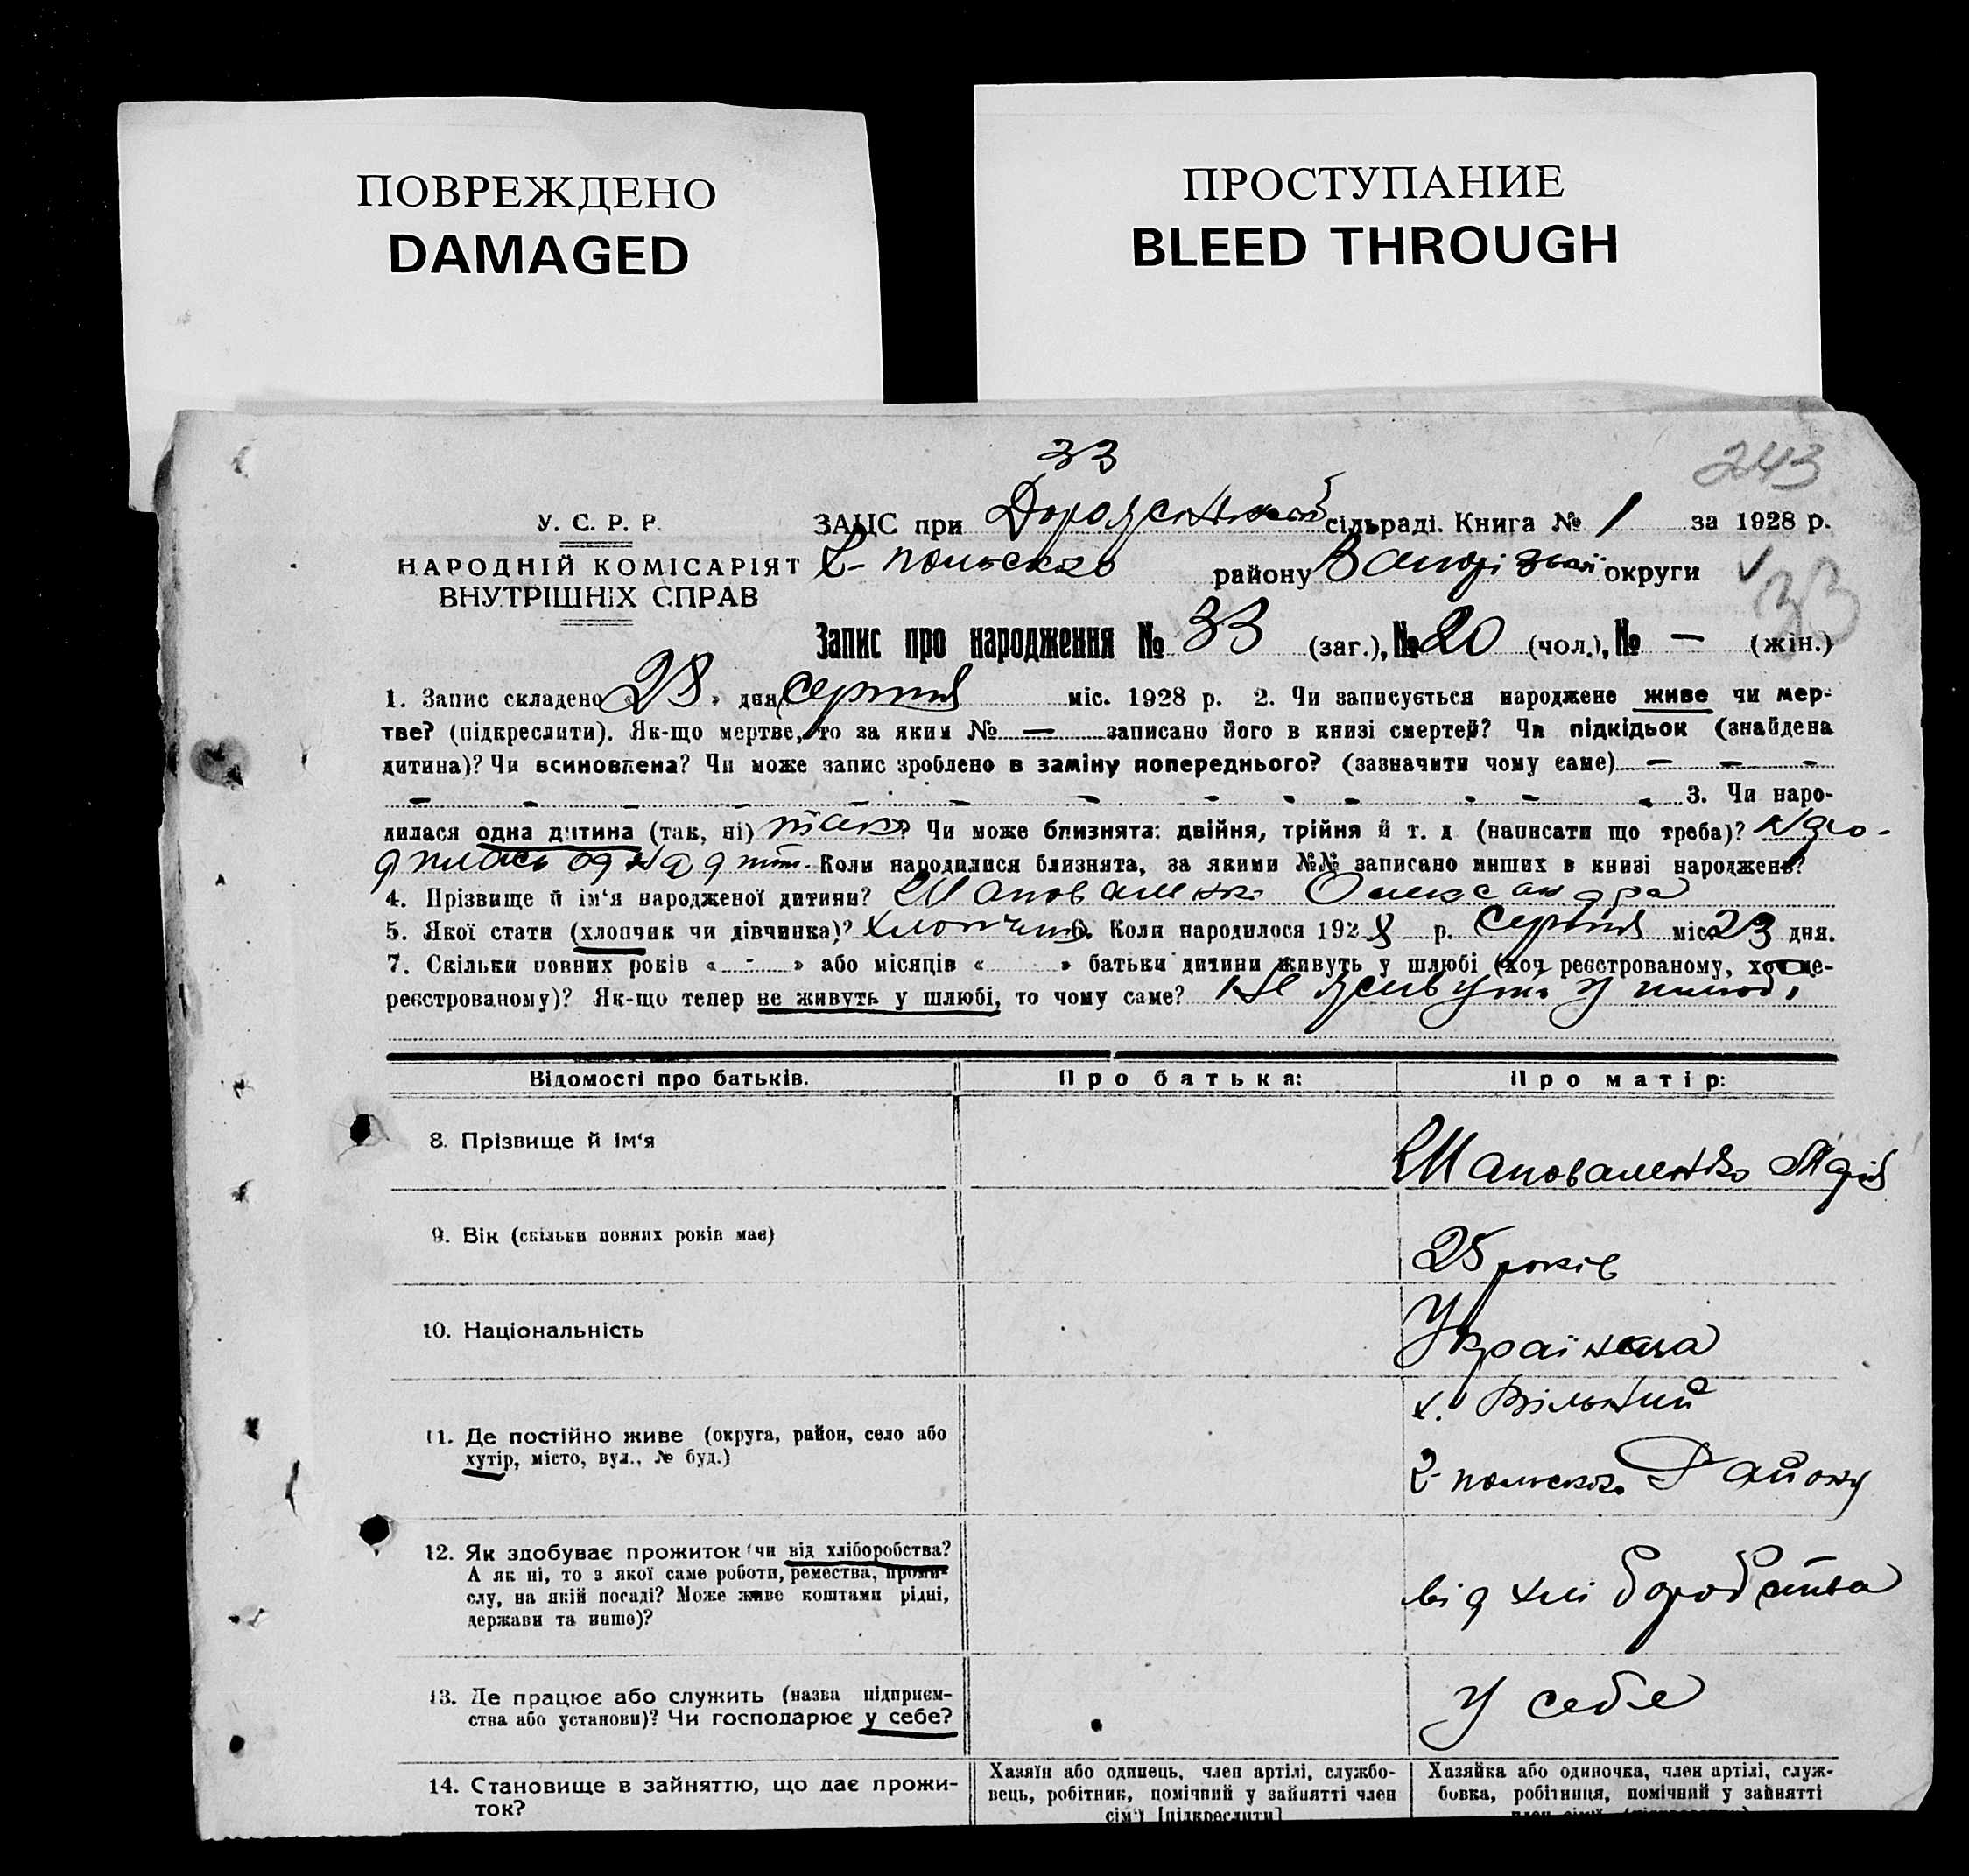 ПОВРЕЖДЕНО
DAMAGED
ПРОСТУПАНИЕ
BLEED THROUGH
33
243
У. С. Р. Р.
НАРОДНІЙ КОМІСАРІЯТ
ВНУТРІШНІХ СПРАВ
ЗАЦС при сільраді. Книга № 1 за 1928 р.
2-польского району округи
33
Запис про народження № 33 (заг.), № 20 (чол.), № — (жін.)
1. Запис складено «28» дня серпня міс. 1928 р. 2. Чи записується народжене живе чи мер-
тве? (підкреслити). Як-що мертве, то за яким № — записано його в книзі смертей? Чи підкідьок (знайдена
дитина)? Чи всиновлена? Чи може запис зроблено в заміну попереднього? (зазначити чому саме) — — —
3. Чи наро-
дилася одна дитина (так, ні) так Чи може близнята: двійня, трійня й т. д (написати що треба)? Наро-
дилась одна дит. Коли народилися близнята, за якими №№ записано инших в книзі народжень?
4. Прізвище й ім'я народженої дитини? Шаповаленко Олександра
5. Якої стати (хлопчик чи дівчинка)? хлопчик 6. Коли народилося 1928 р. серпня міс. 23 дня.
7. Скільки повних років « - » або місяців « - » батьки дитини живуть у шлюбі (хоч реєстрованому, хоч не-
реєстрованому)? Як-що тепер не живуть у шлюбі, то чому саме? Не живуть у шлюбі
Відомості про батьків.
Про батька:
Про матір:
8. Прізвище й ім'я
Шаповаленко Марія
9. Вік (скільки повних років має)
25 років
10. Національність
Українка
11. Де постійно живе (округа, район, село або
хутір, місто, вул., № буд.)
х. Вільний
2-польского Району
12. Як здобуває прожиток (чи від хліборобства?
А як ні, то з якої саме роботи, ремества, проми-
слу, на якій посаді? Може живе коштами рідні,
держави та инше)?
від хліборобства
13. Де працює або служить (назва підприєм-
ства або установи)? Чи господарює у себе?
У себе
14. Становище в зайняттю, що дає прожи-
ток?
Хазяїн або одинець, член артілі, службо-
вець, робітник, помічний у зайнятті член
сім'ї [підкреслити]
Хазяйка або одиночка, член артілі, служ-
бовка, робітниця, помічний у зайнятті